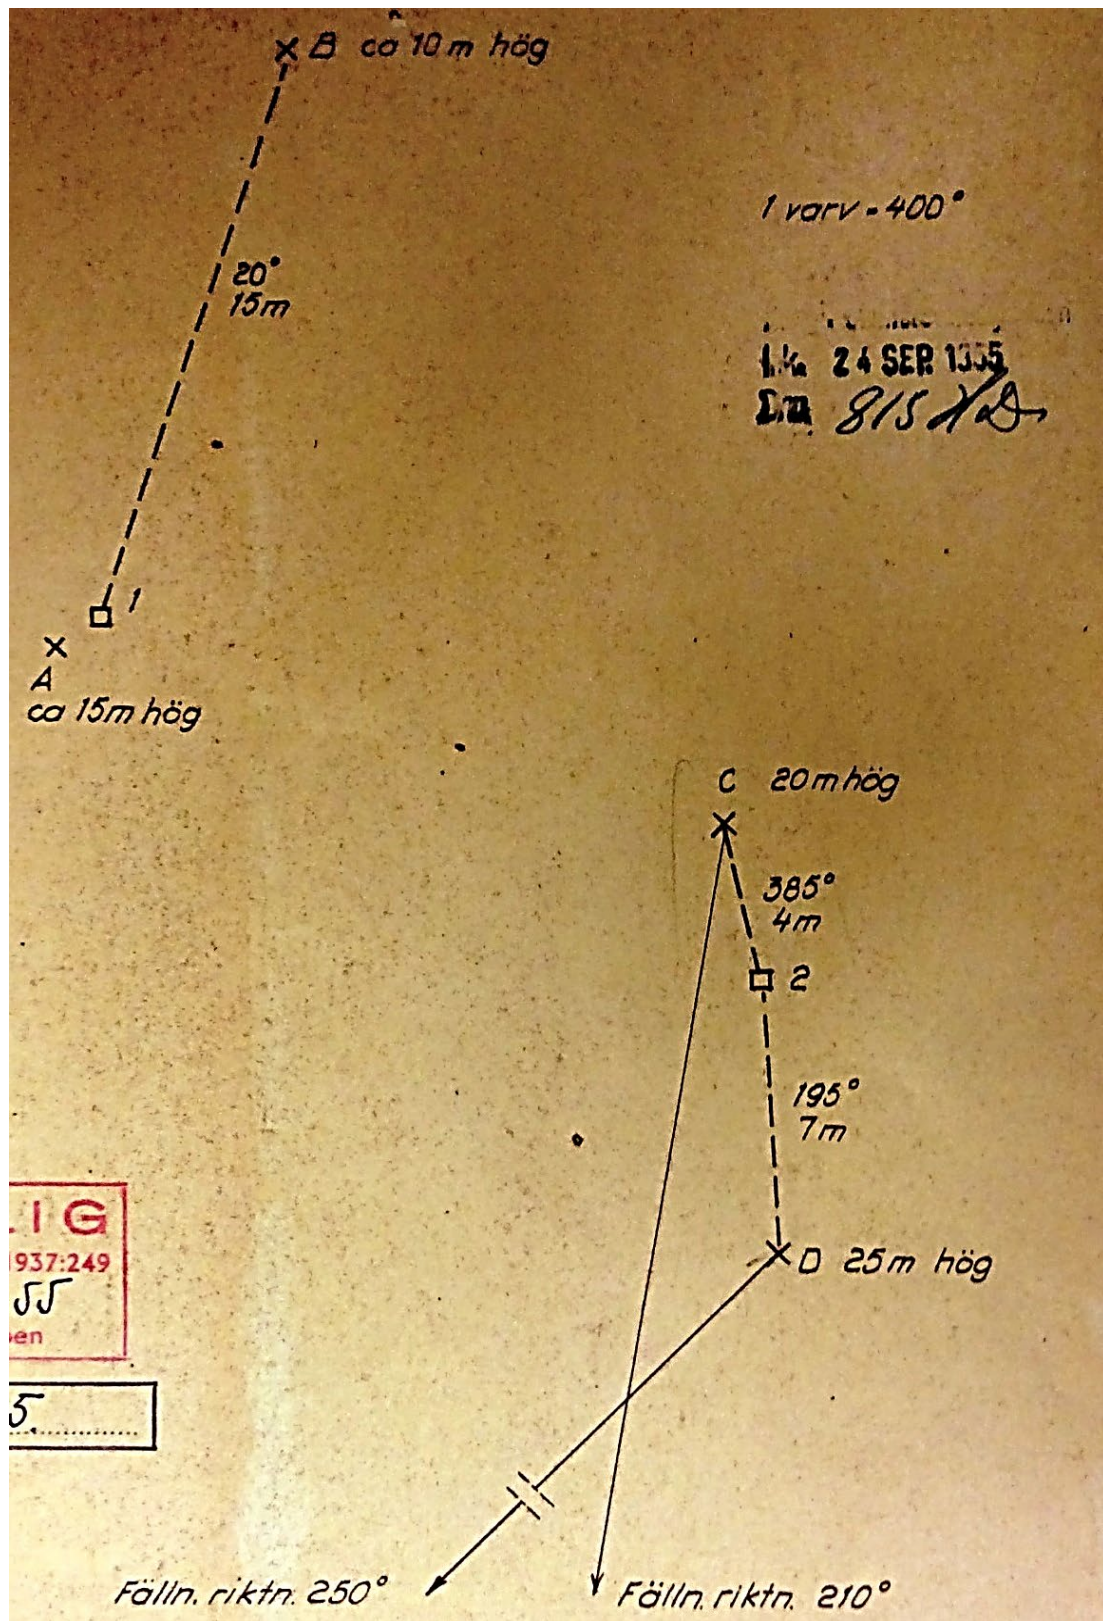 B ca 10 m hög
1 varv = 400°
20°
15m
24 SEP. 1955
815
1
A
ca 15m hög
C 20 m hög
385°
4m
2
195°
7m
LIG
1937:249
55
en
D 25m hög
5.
Fälln. riktn. 250°
Fälln. riktn. 210°